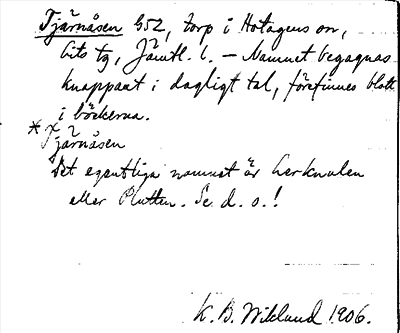 Tjärnåsen G52, torp i Hotagens sn,
Lits tg, Jämtl. l. – Namnet begagnas
knappast i dagligt tal, förefinnes blott
i böckerna.
* Tjärnåsen
Det egentliga namnet är Lerknulen
eller Plutten. Se d. o.!
K. B. Wiklund 1906.